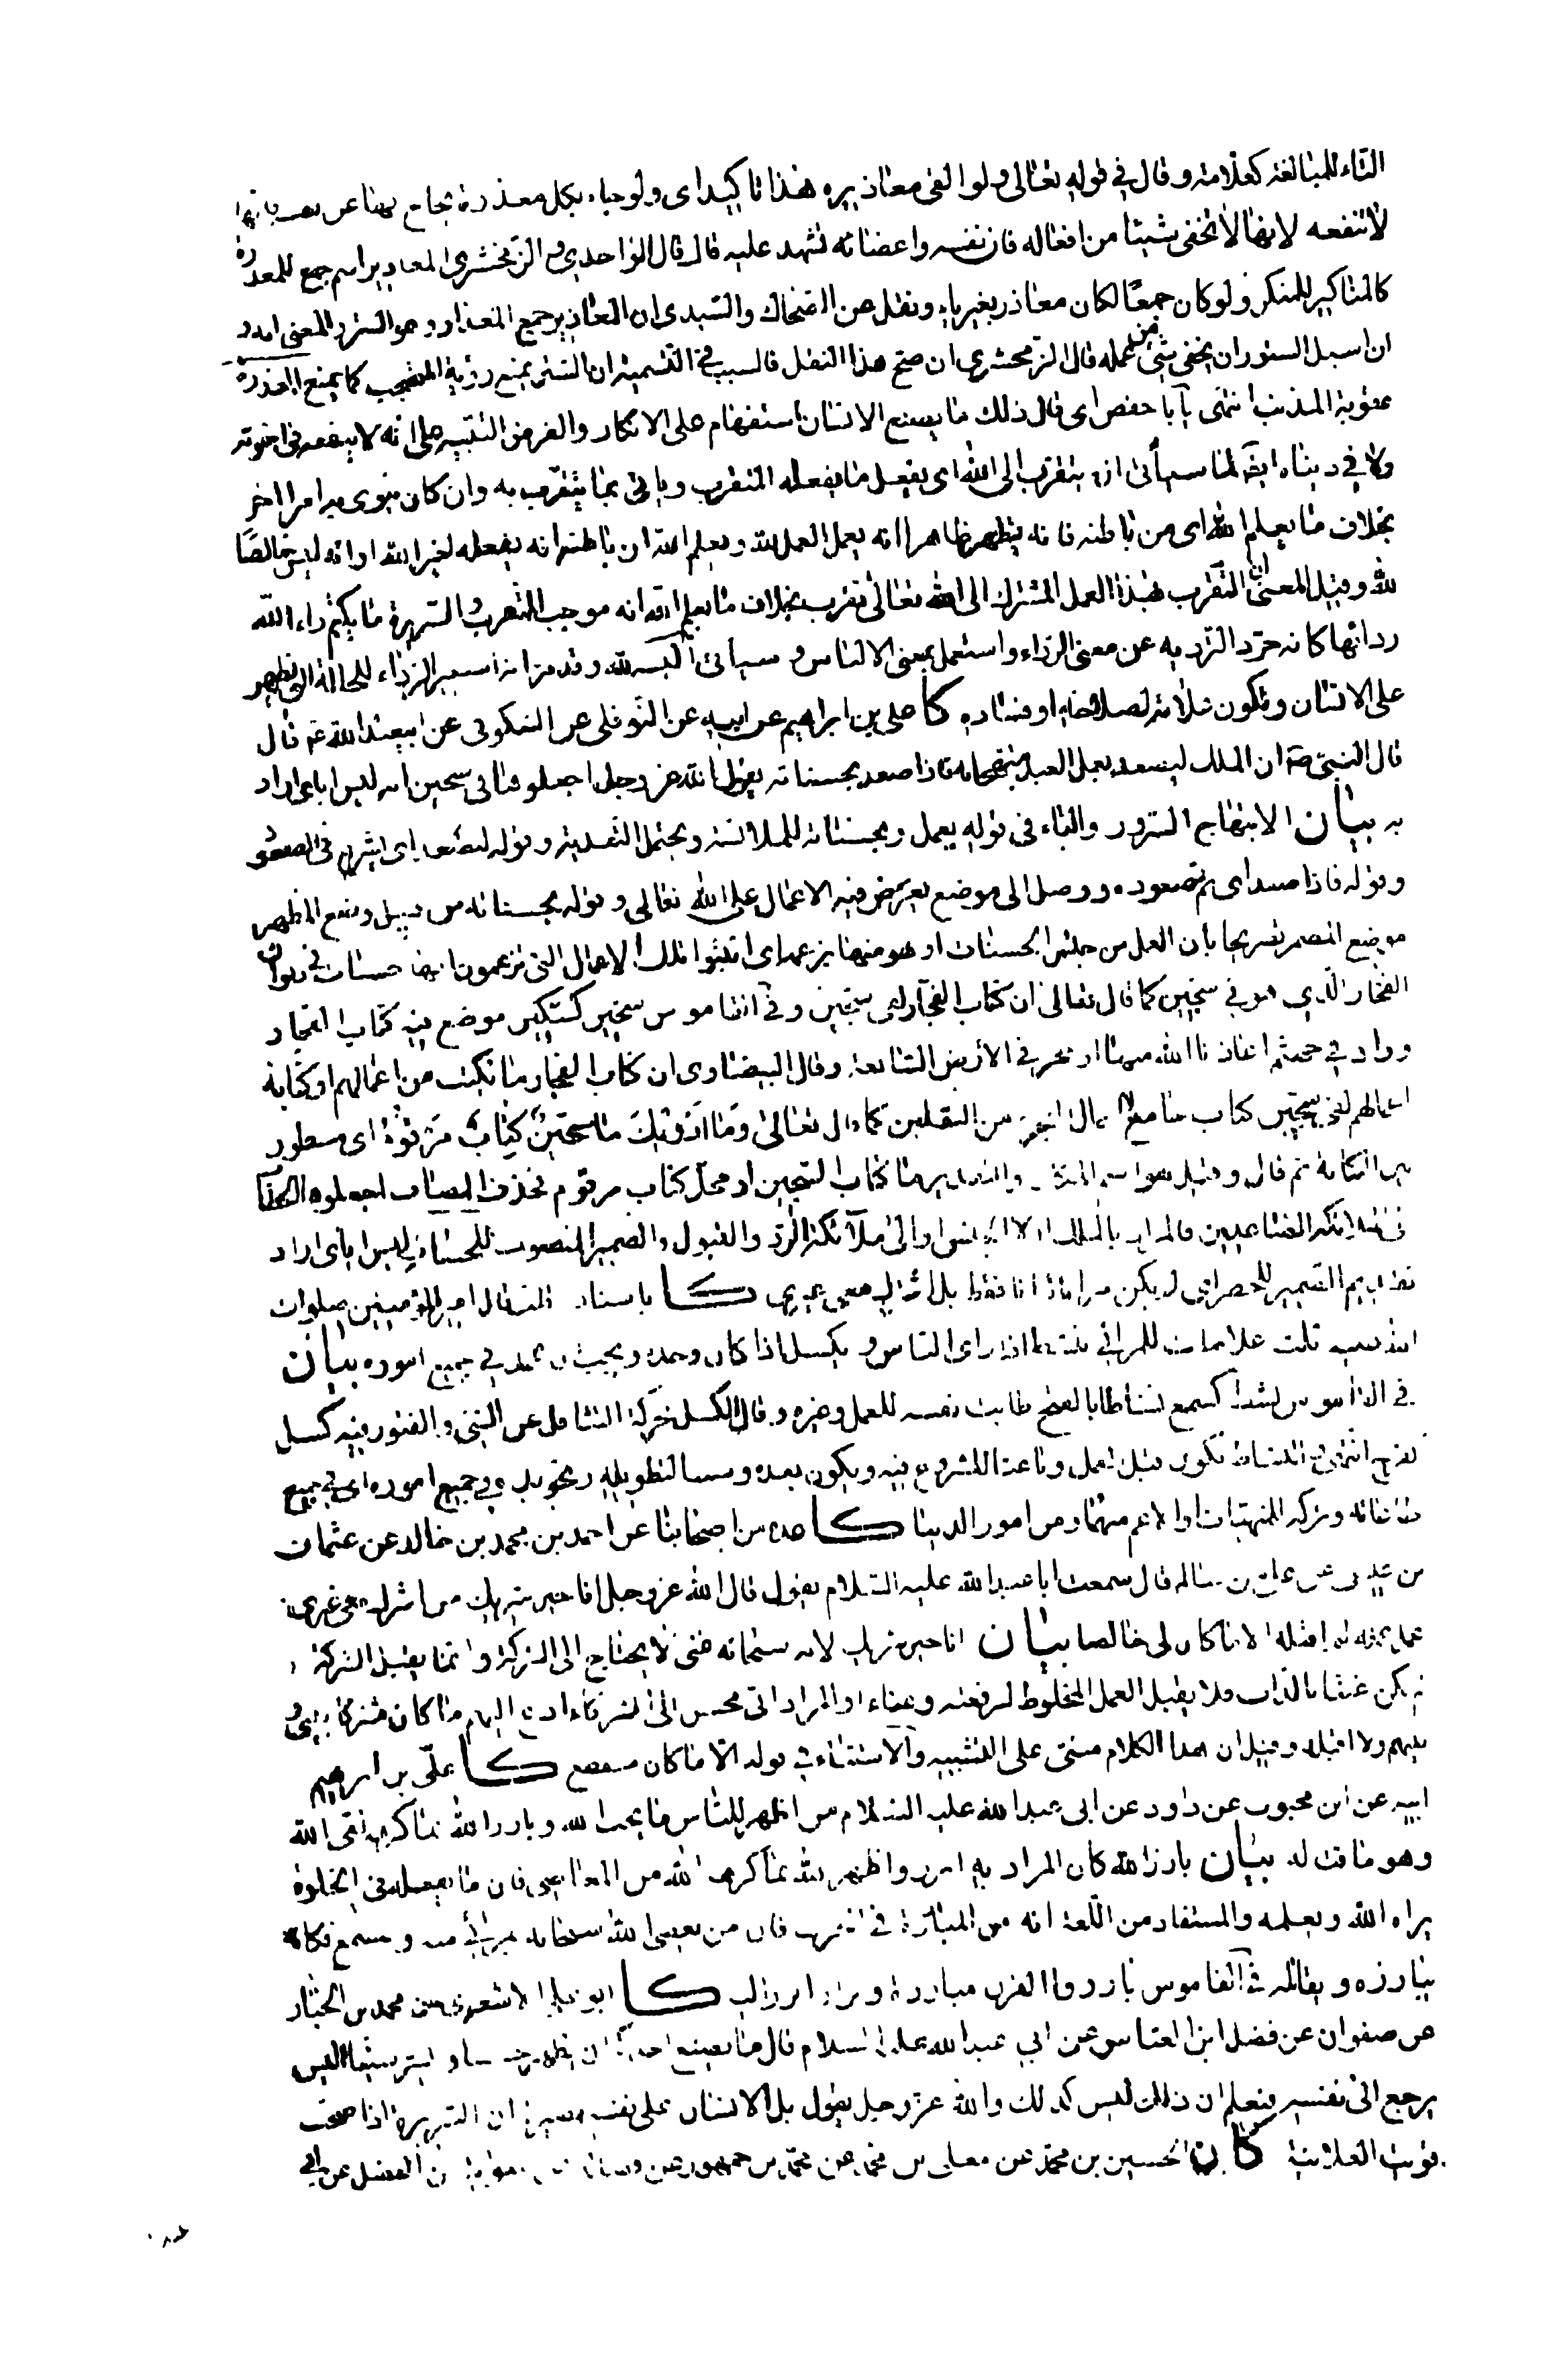 التاء للمبالغة كعلامة وقال في قوله تعالى ولو القى معاذيره هذا تاكيد اى ولو جاء بكل معذرة يحاج بها عن نفسه فانها
لا تنفعه لانها لا تخفى شيئا من افعاله فان نفسه واعضائه تشهد عليه قال قال الواحدي و الزمخشري المعاذير اسم جمع للمعذرة
كالمناكير للمنكر ولو كان جمعا لكان معاذر بغير ياء ونقل عن الضحاك والسدى ان المعاذير جمع المعذار وهو الستر والمعنى انه
ان اسبل الستور ان يخفى شئ من عمله قال الزمخشري ان صح هذا النقل فالسبب في التسمية ان الستر يمنع رؤية المحتجب كما يمنع المعذرة
عقوبة المذنب انتهى يا با حفص اى قال ذلك ما يصنع الانسان استفهام على الانكار والغرض التنبيه على انه لا ينفعه في اخرته
ولا في دنياه ايضا لما سيأتى ان يتقرب الى الله اى يفعل ما يفعله المتقرب وياتى بما يتقرب به وان كان ينوى به امرا اخر
بخلاف ما يعلم الله اى من باطنه فانه يظهر ظاهرا انه يعمل العمل لله ويعلم الله ان باطنه انه يفعله لغير الله او انه ليس خالصا
لله وقيل المعنى ان التقرب بهذا العمل المشترك الى الله تعالى تقرب بخلاف ما يعلم الله انه موجب التقرب و السريرة ما يكتم رداه الله
ردائها كانه جرد التردية عن معنى الرداء واستعمل بمعنى الالباس و سيأتى البسه الله وقد مر انه استعير الرداء للحالة التى تظهر
على الانسان وتكون علامة لصلاحه او فساده كا على بن ابراهيم عن ابيه عن النوفلى عن السكونى عن ابيعبد الله ع قال
قال النبى ص ان الملك ليصعد بعمل العبد مبتهجا به فاذا صعد بحسناته يقول الله عز وجل اجعلوها فى سجين انه ليس اياى اراد
به بيان الابتهاج السرور والباء فى قوله بعمل وبحسناته للملابسة ويحتمل التعدية وقوله ليصعد اى يشرع في الصعود
وقوله فاذا صعد اى تم صعوده ووصل الى موضع يعرض فيه الاعمال على الله تعالى وقوله بحسناته من قبيل وضع المظهر
موضع المضمر تصريحا بان العمل من جنس الحسنات او هو منها بزعمه اى اثبتوا تلك الاعمال التى تزعمون انها حسنات في ديوان
الفجار الذي هو في سجين كما قال تعالى ان كتاب الفجار لفى سجين و في القاموس سجين كسكين موضع فيه كتاب الفجار
وواد في جهنم اعاذنا الله منها او حجر في الارض السابعة وقال البيضاوى ان كتاب الفجار ما يكتب من اعمالهم او كتابة
اعمالهم لفى سجين كتاب جامع لاعمال الفجرة من الثقلين كما قال تعالى وما ادريك ما سجين كتاب مرقوم اى مسطور
بين الكتابة ثم قال وقيل هو اسم المكان والتقدير ما كتاب السجين او محل كتاب مرقوم فحذف المضاف اجعلوها الخطاب
الى الملائكة الصاعدين فالمراد بالملك اولا الجنس او الى ملائكة الرد والقبول والضمير المنصوب للحسنات ليس اياى اراد
تقديم الضمير للحصر اى لم يكن مراده انا فقط بل اشرك معى غيرى كا باسناده قال قال امير المؤمنين صلوات
الله عليه ثلث علامات للمرائى ينشط اذا راى الناس و يكسل اذا كان وحده ويحب ان يحمد في جميع اموره بيان
في القاموس نشط كسمع نشاطا بالفتح طابت نفسه للعمل وغيره وقال الكسل محركة التثاقل عن الشئ والفتور فيه كسل
كفرح انتهى النشاط يكون قبل العمل وباعثا للشروع فيه ويكون بعده وسببا لتطويله وتجويده في جميع اموره اى في جميع
طاعاته وتركه للمنهيات او الاعم منهما ومن امور الدنيا كا عدة من اصحابنا عن احمد بن محمد بن خالد عن عثمان
بن عيسى عن على بن سالم قال سمعت ابا عبد الله عليه السلام يقول قال الله عز وجل انا خير شريك من اشرك معى غيرى
عمل عمله لم اقبله الا ما كان لى خالصا بيان انا خير شريك لانه سبحانه غنى لا يحتاج الى الشركة وانما يقبل الشركة
لم يكن غنيا بالذات فلا يقبل العمل المخلوط لرفعته وغناه او المراد انى محسن الى الشركاء ادع اليهم ما كان مشتركا بينى و
بينهم ولا اقبله وقيل ان هذا الكلام مبنى على التشبيه والاستثناء في قوله الا ما كان منقطع كا على بن ابرهيم
ابيه عن ابن محبوب عن داود عن ابى عبد الله عليه السلام من اظهر للناس ما يحب الله وبارز الله بما كرهه لقى الله
وهو ماقت له بيان بارز الله كان المراد به ابرز واظهر لله بما كرهه الله من المعاصى فان ما يفعله فى الخلوة
يراه الله ويعلمه والمستفاد من اللغة انه من المبارزة في الحرب فان من يعصى الله سبحانه بمرأى منه ومسمع فكانه
يبارزه ويقاتله في القاموس بارز القرن مبارزة وبرازا برز اليه كا ابو على الاشعرى عن محمد بن عبد الجبار
عن صفوان عن فضل ابى العباس عن ابى عبد الله عليه السلام قال ما يصنع احدكم ان يظهر حسنا و يسر سيئا اليس
يرجع الى نفسه فيعلم ان ذلك ليس كذلك والله عز وجل يقول بل الانسان على نفسه بصيرة ان السريرة اذا صحت
قويت العلانية كا الحسين بن محمد عن معلى بن محمد عن محمد بن جمهور عن فضالة عن معوية عن الفضيل عن ابى